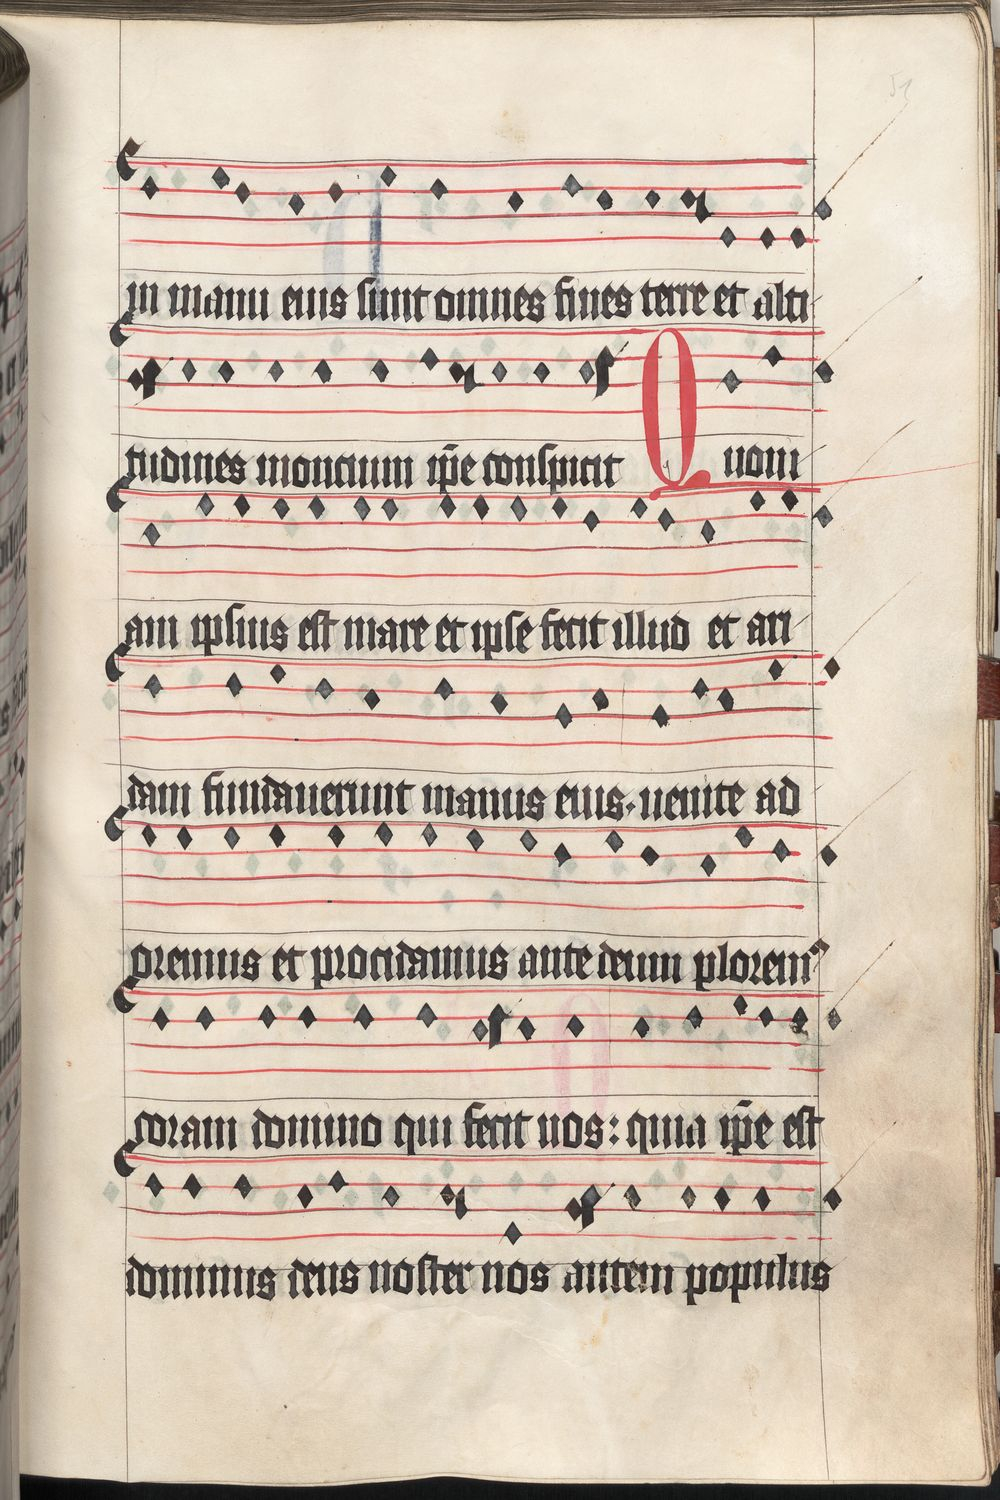 53
in manu eius sunt omnes fines terre et alti
tudines montium ip̄e conspicit Quoni
am ipsius est mare et ipse fecit illud et ari
dam fundauerunt manus eius·uenite ad
oremus et procidamus ante deum ploremꝰ
coram domino qui fecit nos: quia ip̄e est
dominus deus noster nos autem populus